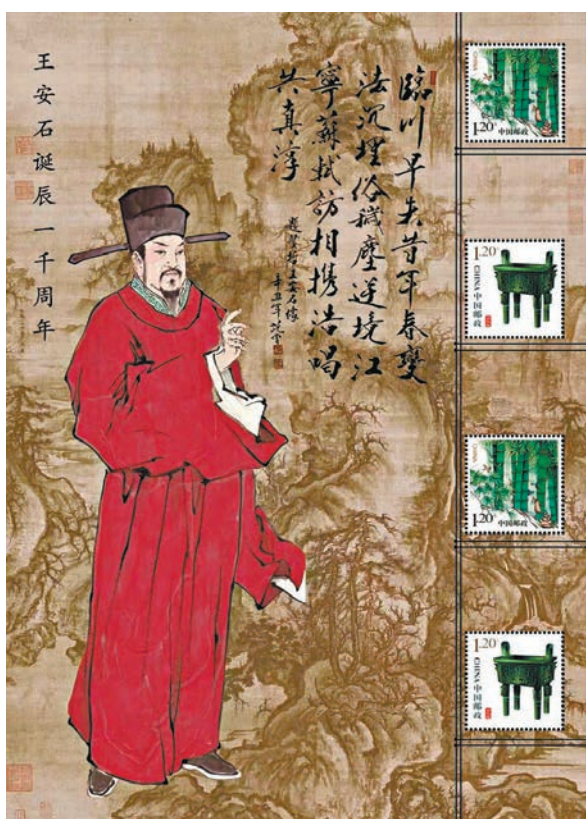 王安石诞辰一千周年
臨川早失昔年春變
法沉埋俗穢塵逆境江
寧蘇軾訪相携浩唱
共真淳
王安石像
辛丑
CHINA
1.20
中国邮政
1.20
CHINA
中国邮政
CHINA
1.20
中国邮政
1.20
CHINA
中国邮政